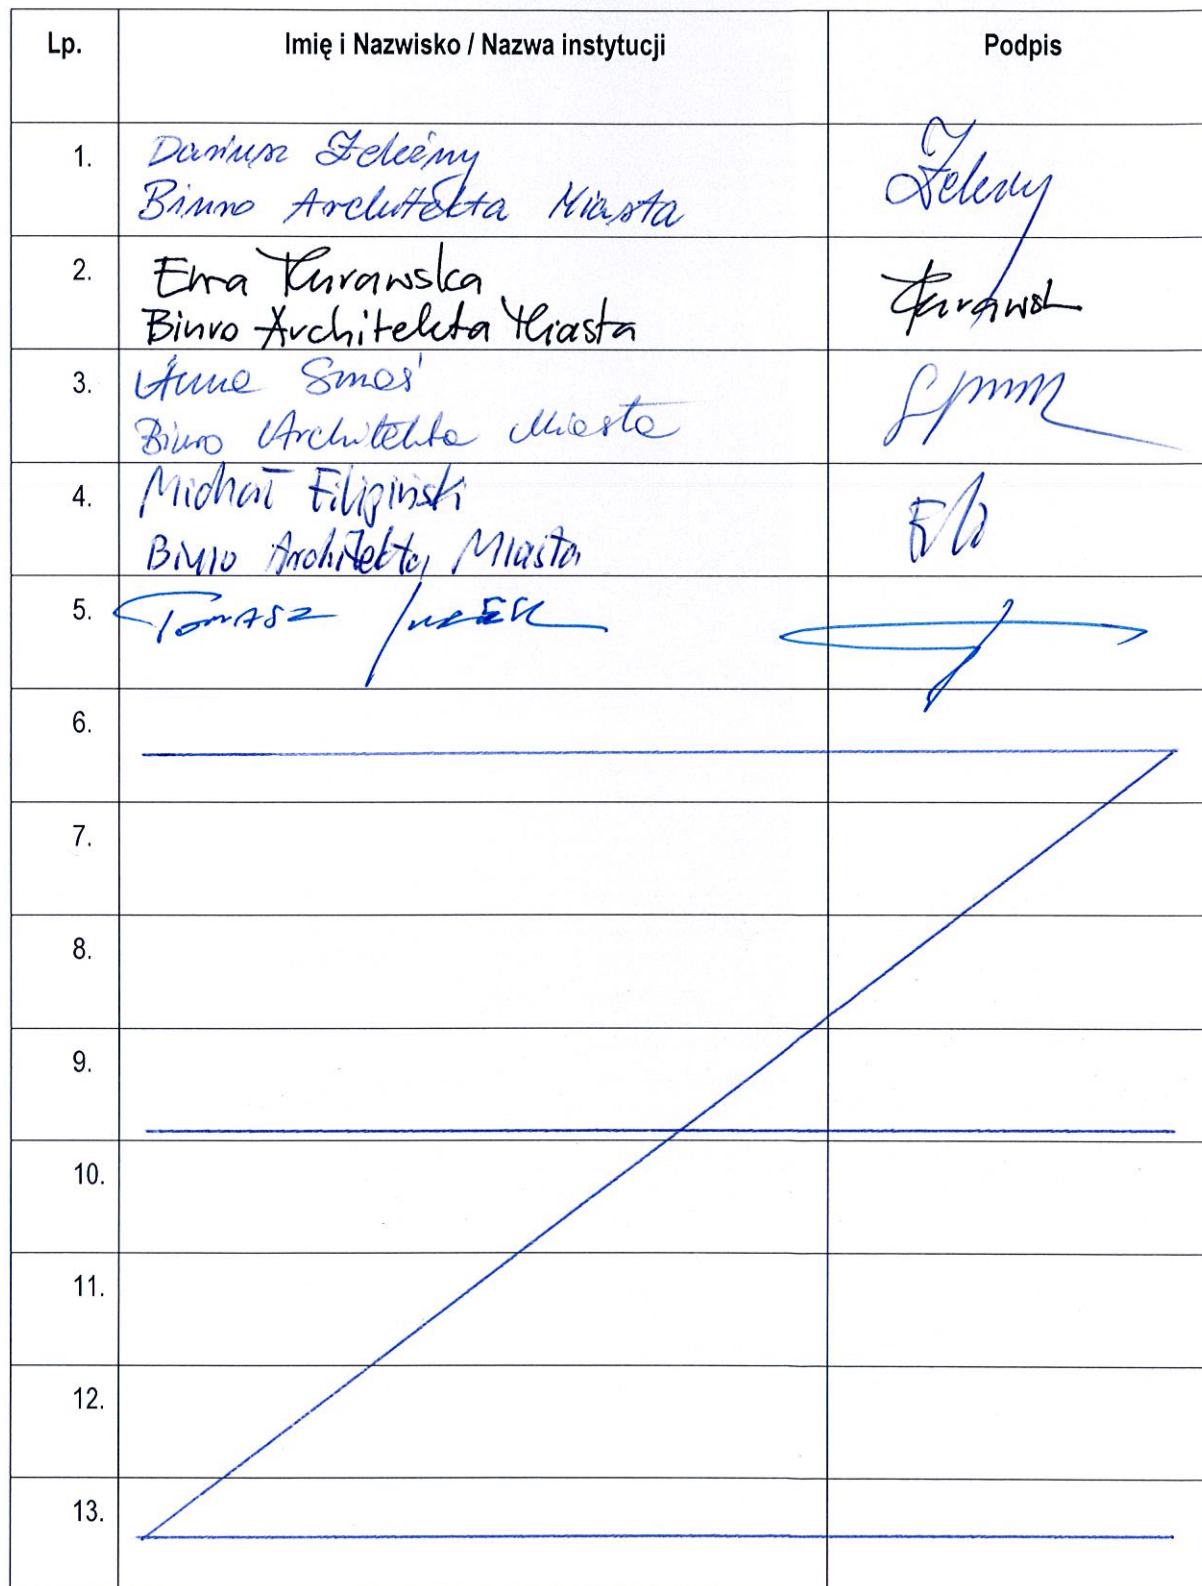 Lp. Imię i Nazwisko / Nazwa instytucji Podpis
1. Dariusz Żeleźny
Biuro Architekta Miasta
2. Ewa Kurawska Kurawsk
Biuro Architekta Miasta
3. Anna
Biuro Architekta Miasta
4. Michał Filipiński
Biuro Architekta Miasta
5. Tomasz
6.
7.
8.
9.
10.
11.
12.
13.